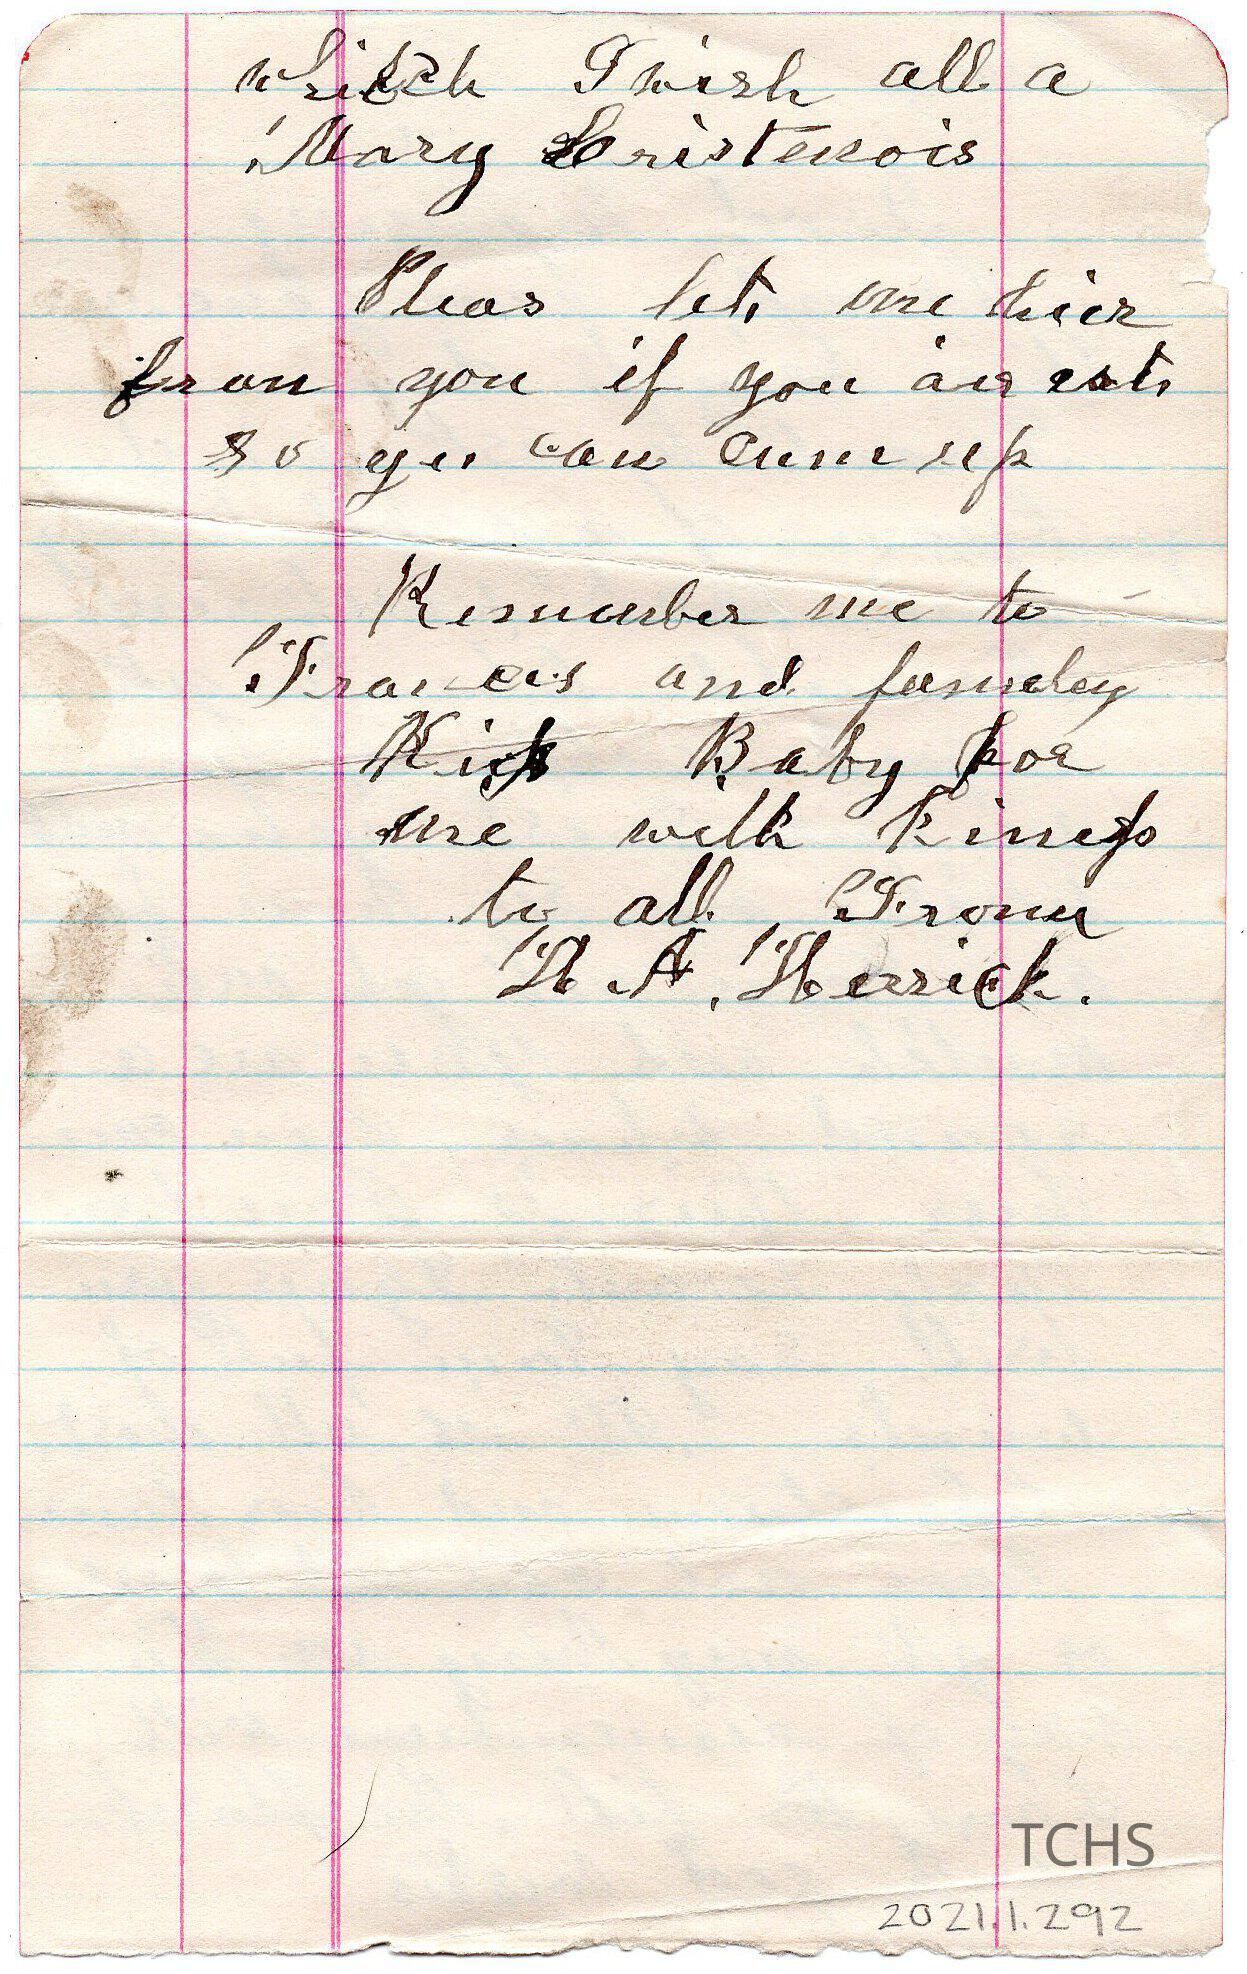 which I wish all a
Mary Cristmois
Pleas let me hier
from you if you
so yu can cum up
Remember me to
Frances and famley
Kiss Baby for
me with
to all From
H. A. Herrick.
TCHS
2021.1.292